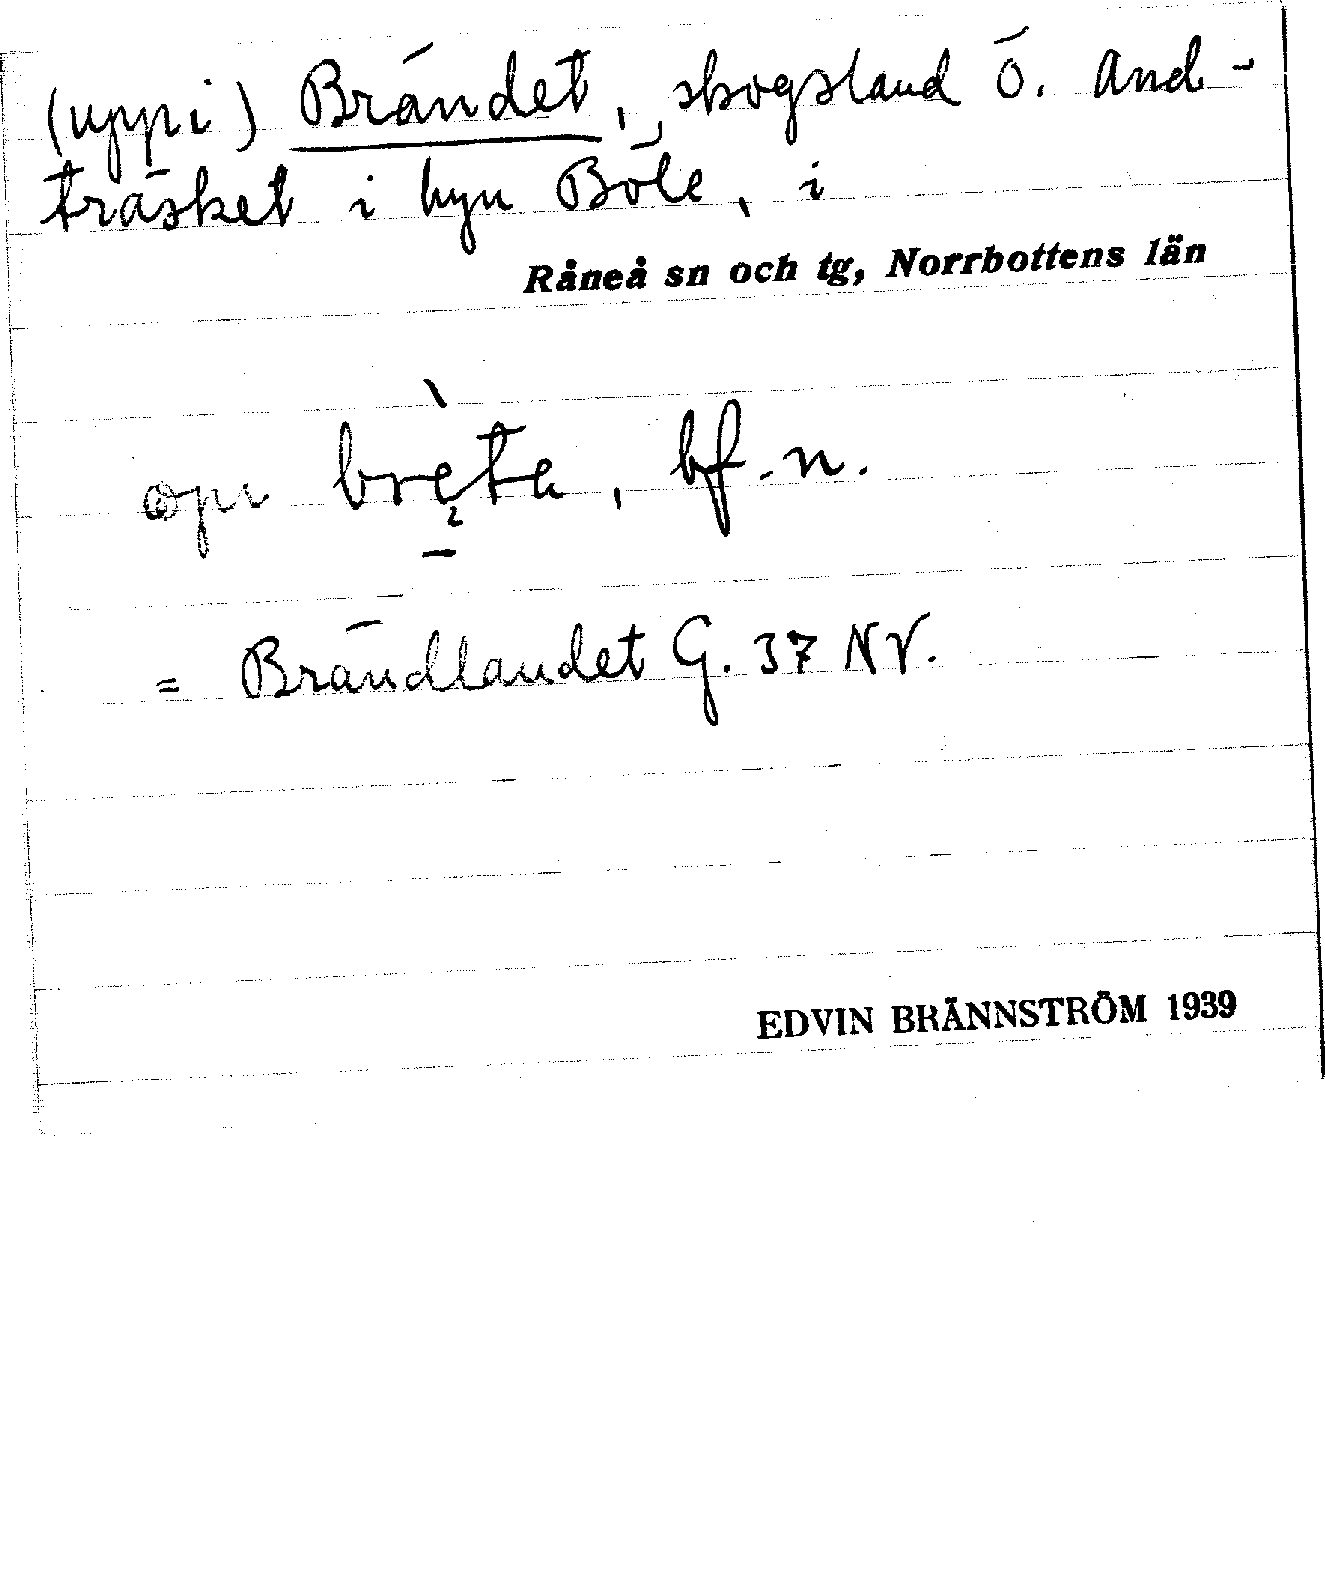 (uppi) Brändet, skogsland Ö. And-
träsket i byn Böle, i
Råneå sn och tg, Norrbottens län
opi bręta, bf. n.
= Brändlandet G. 37 NV.
EDVIN BRÄNNSTRÖM 1939